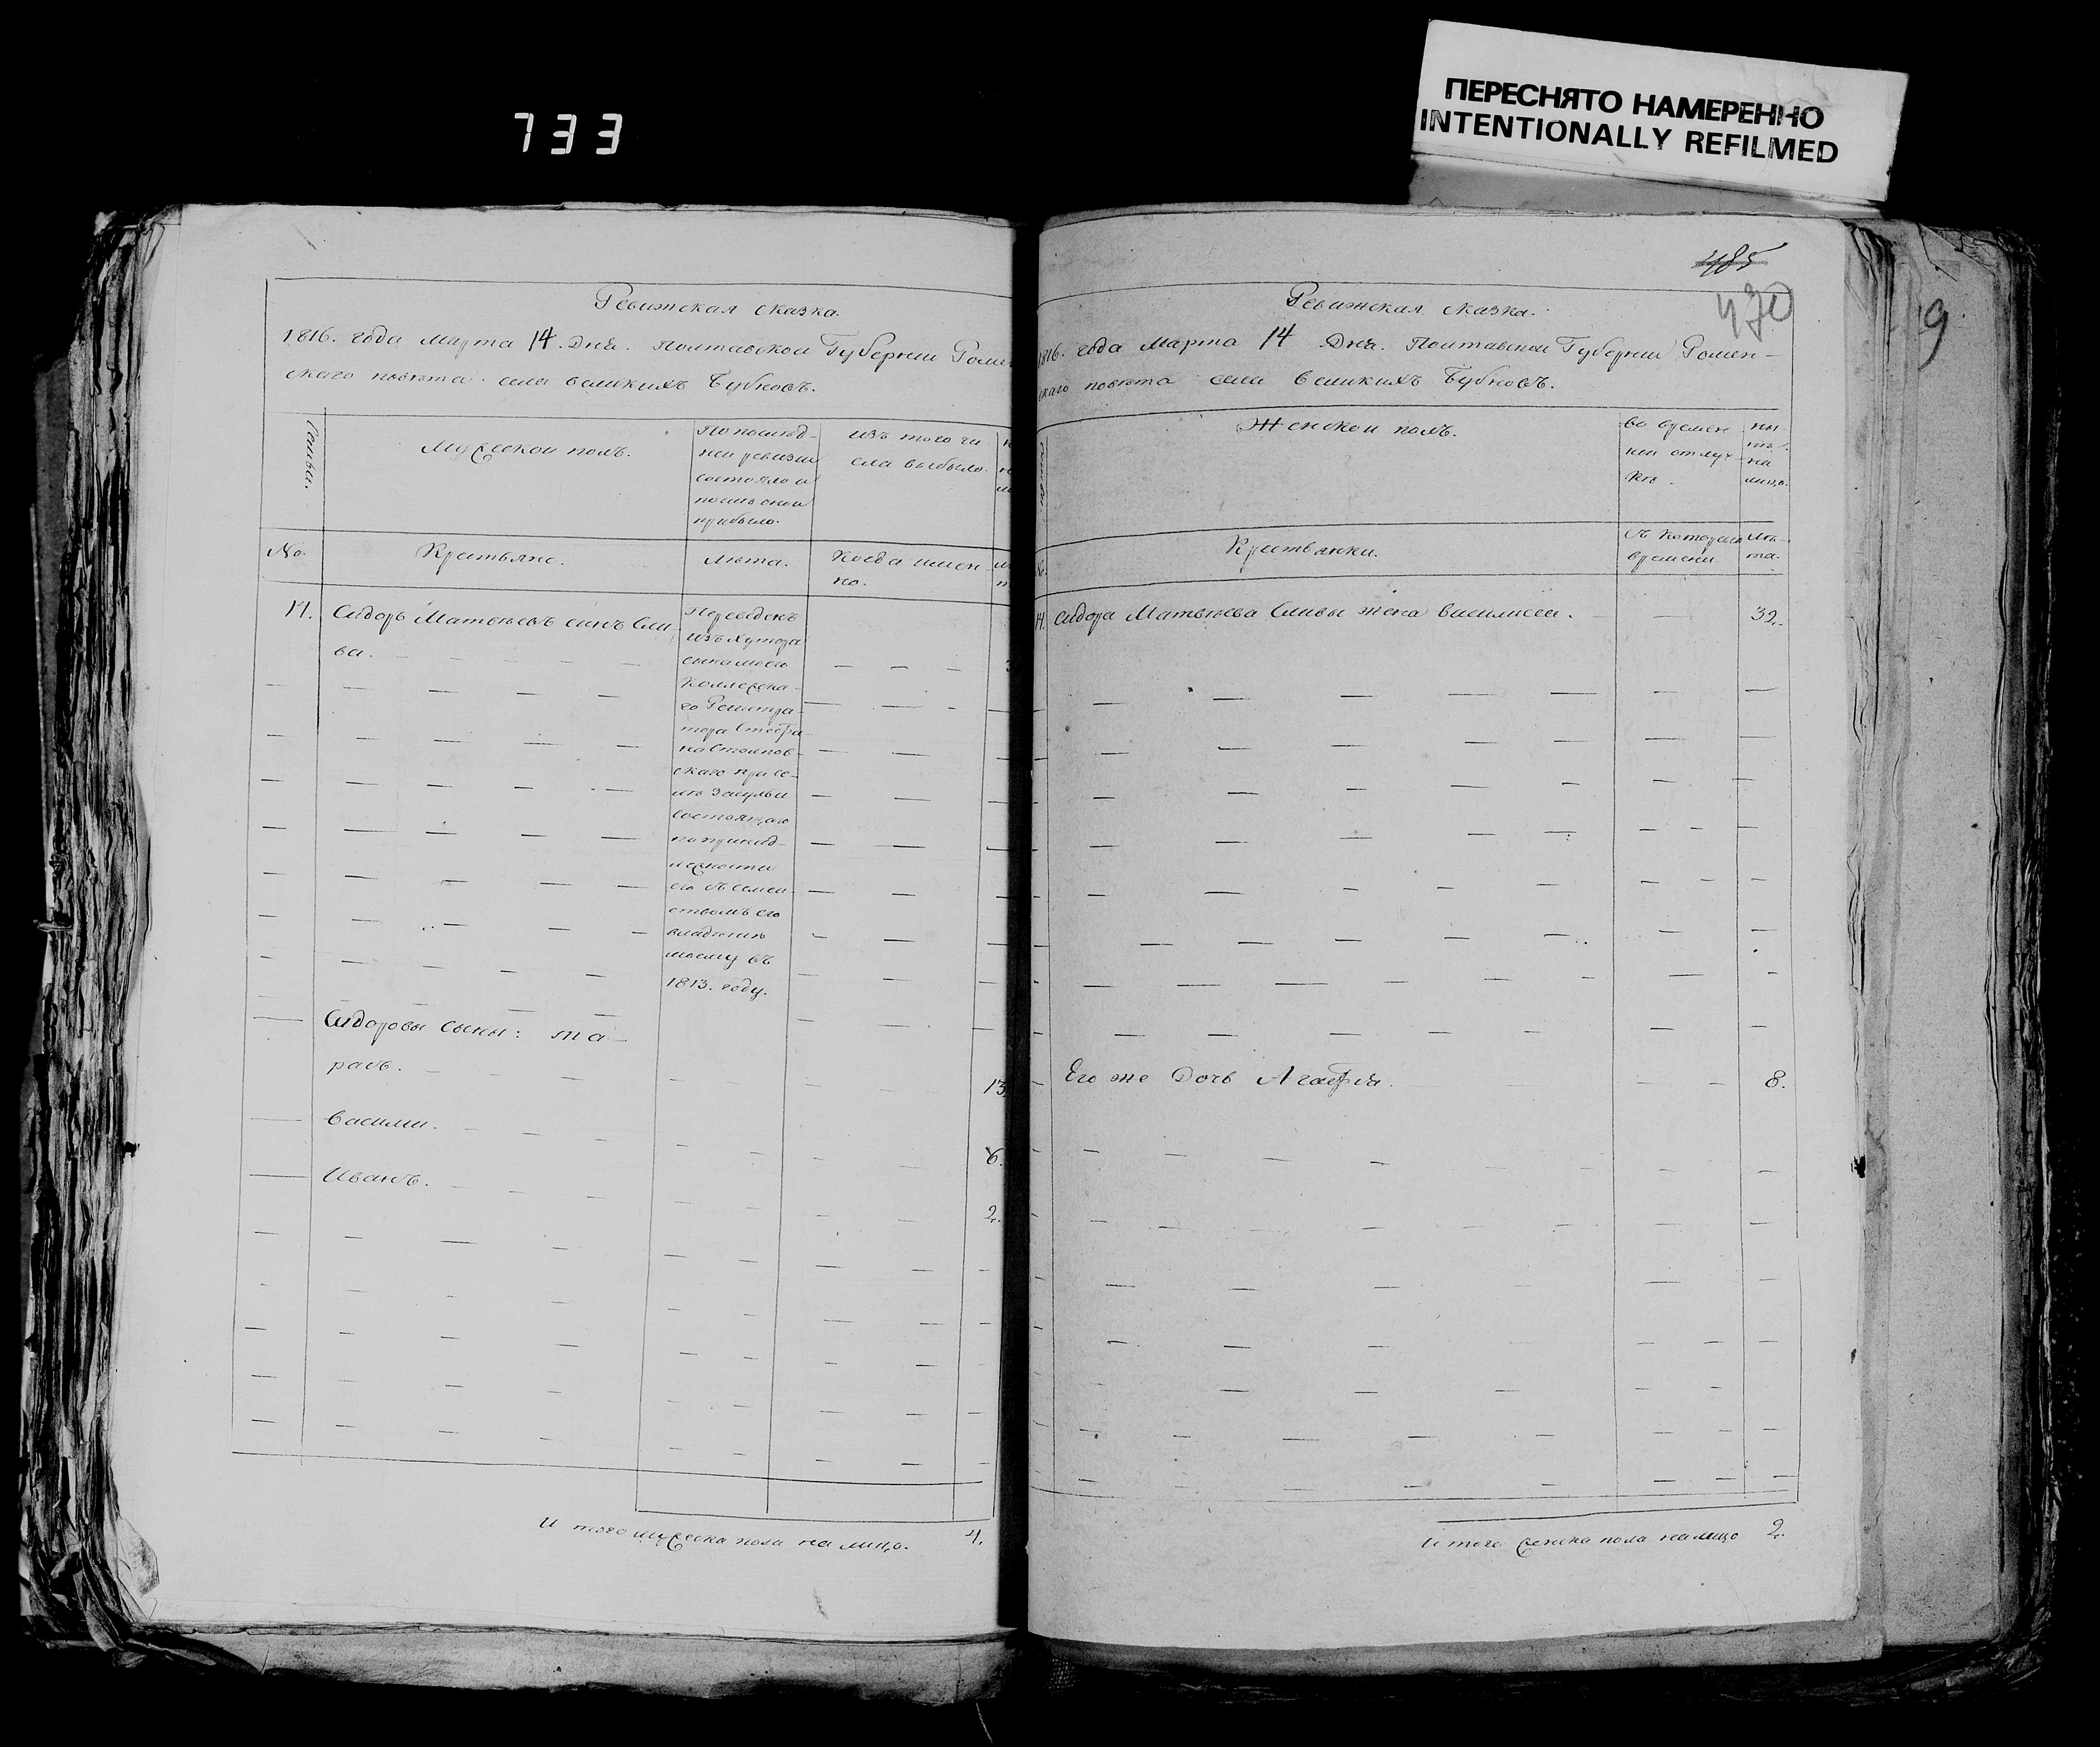 733
ПЕРЕСНЯТО НАМЕРЕННО
INTENTIONALLY REFILMED
Ревижская сказка.
1816. года марта 14. Дня. Полтавской Губернии Ромен
скаго повѣта. села великихъ Бубновъ.
Мужескои полъ.
По послѣд-
неи ревизии
состояло и
послѣ онои
прибыло.
изъ того чи
сла выбыло.
No.
Крестьяне.
Лѣта.
Когда имен
но.
Сидоръ Матвѣевъ синъ Сли
ва.
Переведенъ
изъ хутора
сына моего
Колежска-
го Регистра-
тора Стефа-
на
скаго при се-
лѣ Засульи
состоящаго
по принад-
лежности
его съ семеи-
ствомъ его
владѣнию
моему въ
1813. году.
Сидоровы сыны: та-
расъ.
13.
Василии.
6.
Иванъ.
2.
И того мужеска пола на лицо. 4.
485
470
9
Ревижская сказка.
1816. года Марта 14 Дня. Полтавскои Губернии Ромен-
скаго повѣта села великихъ Бубновъ.
Женскои полъ.
во времен
неи отлуч-
кѣ.
ны
нѣ
на
лицо.
No.
Крестьянки.
съ котораго
времени.
Лѣ-
та.
Сидора Матвѣева Сливы жена василиса. 32.
Его же Дочь Агафия. 8.
И того женска пола на лицо 2.